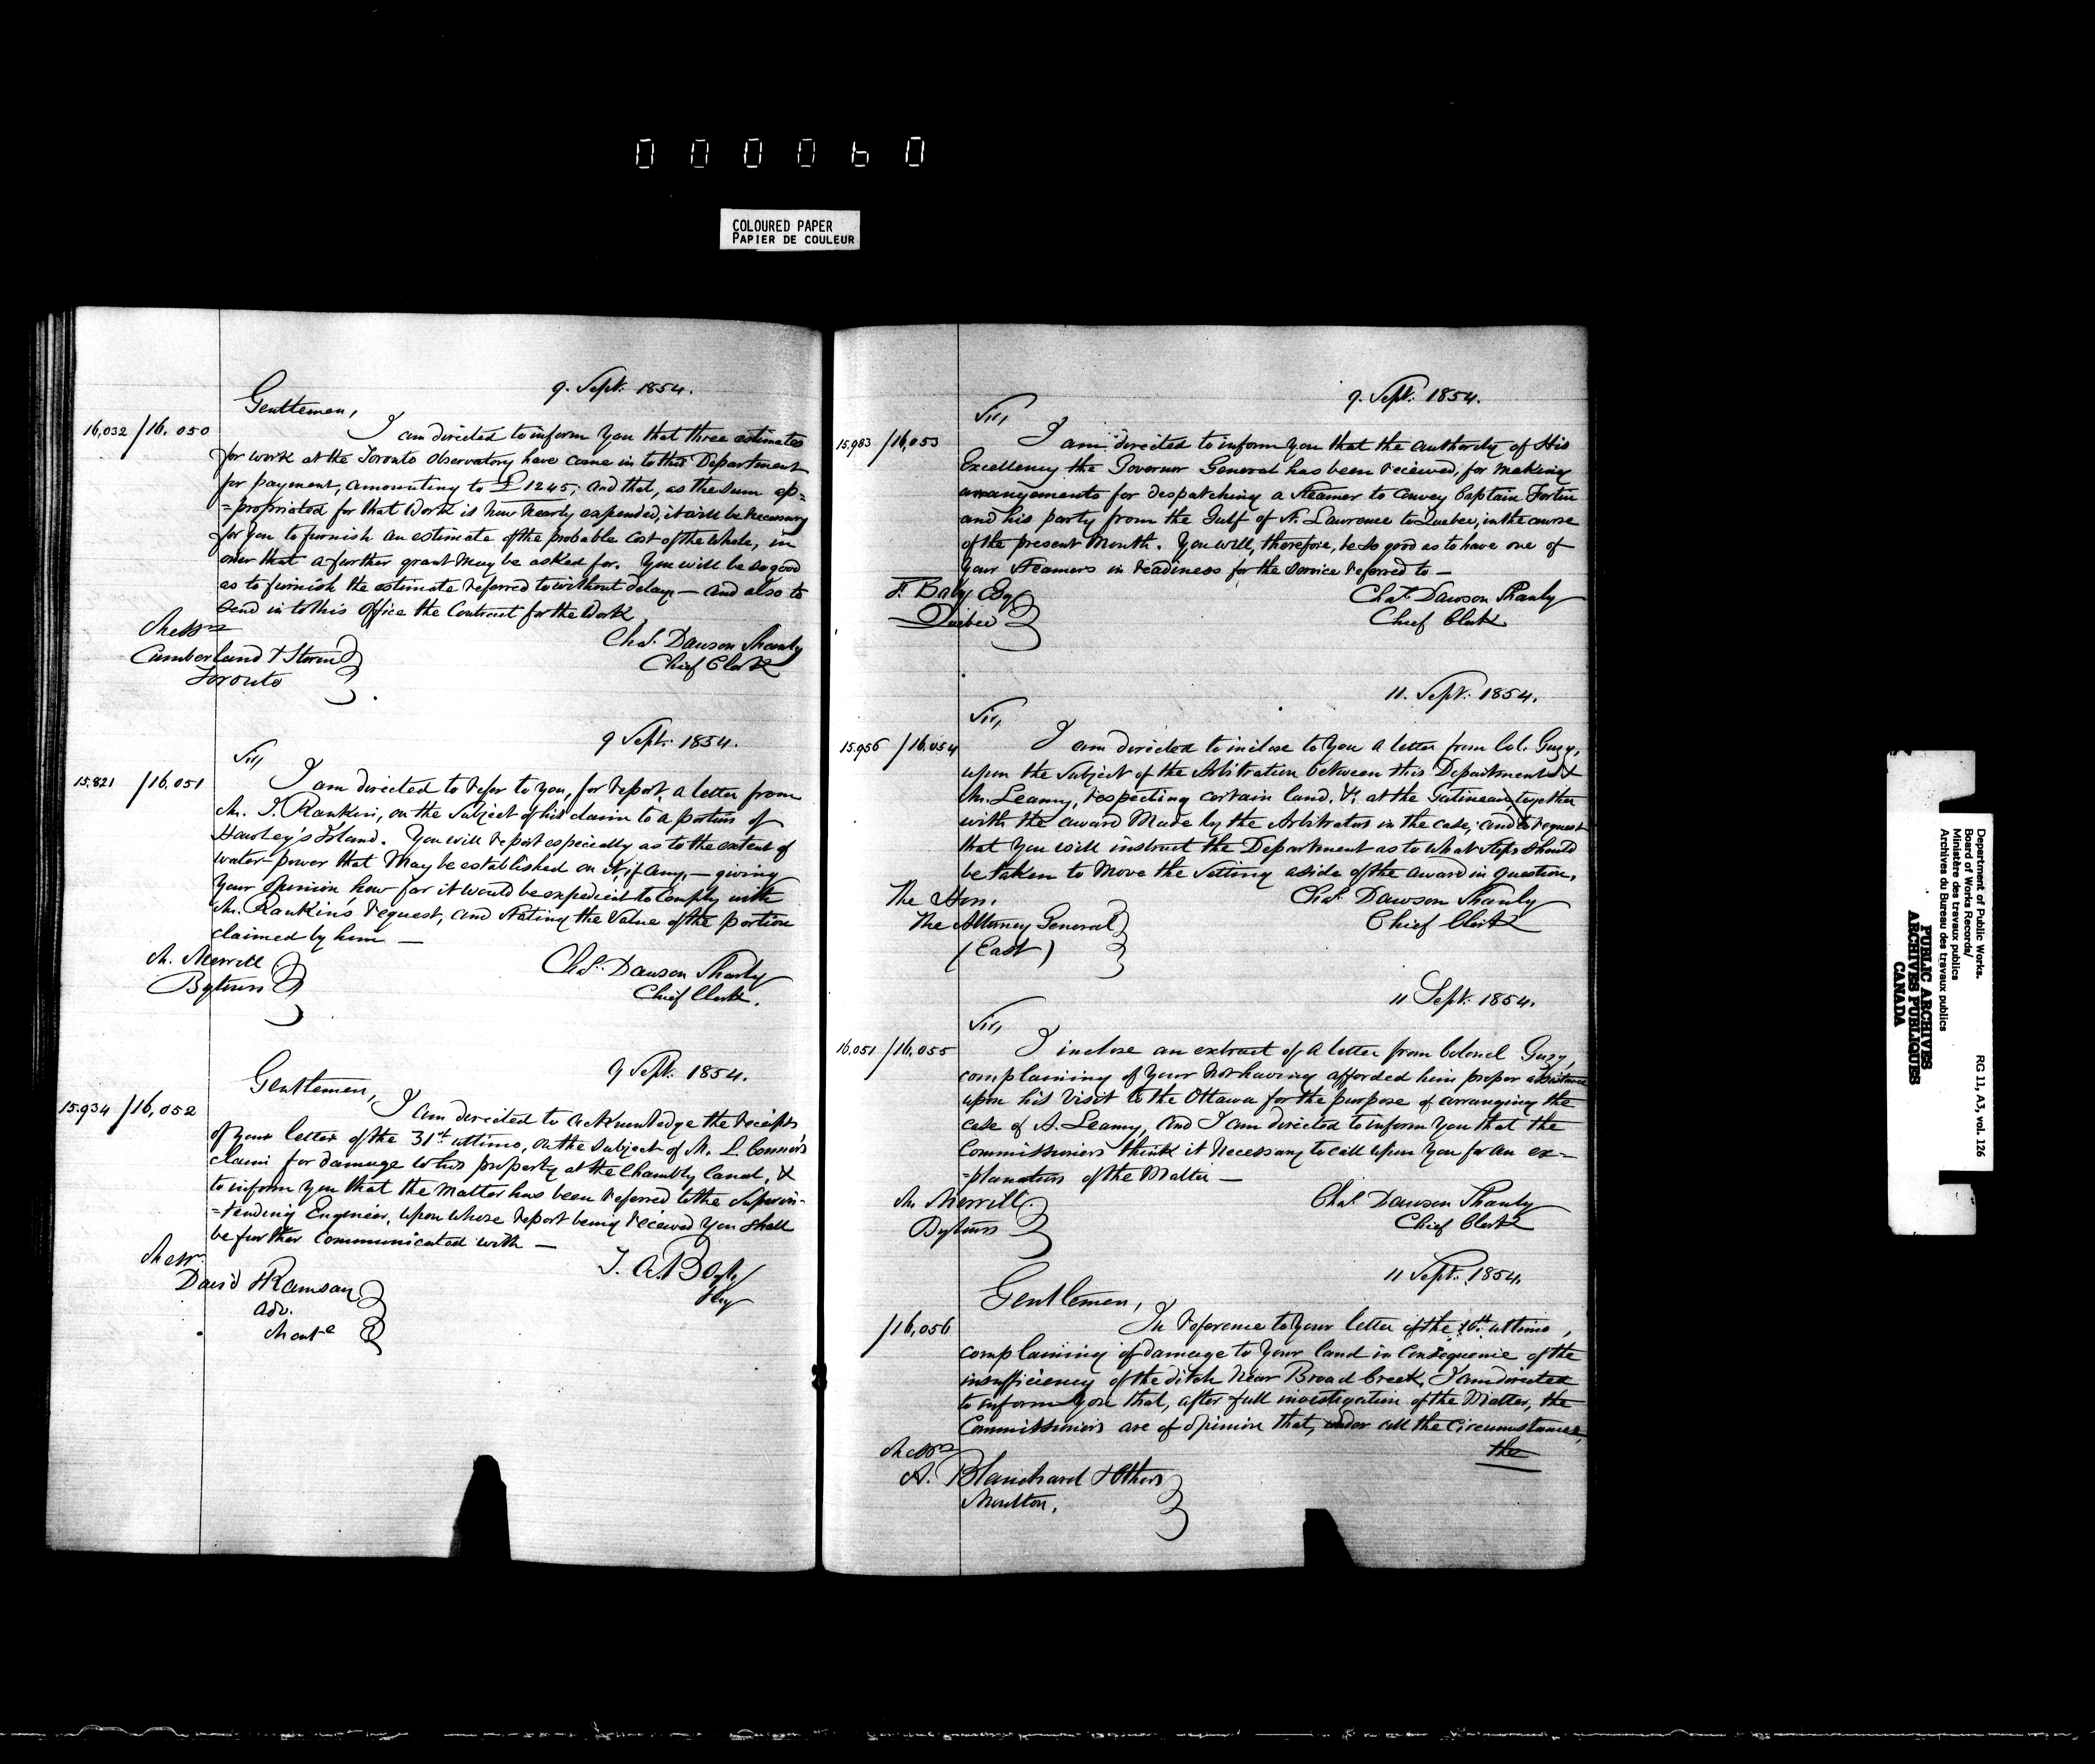 000060
COLOURED PAPER
PAPIER DE COULEUR
9. Sept. 1854.
Gentlemen,
16,032 / 16.050
I am directed to inform you that three estimates
for work at the Toronto Observatory have come in to this Department
for payment, amounting to £1245; and that, as the sum ap=
=propriated for that Work is now nearly expended, it will be necessary
for you to furnish an estimate of the probable cost of the whole, in
order that a further grant may be asked for. You will be so good
as to furnish the estimate referred to without delay — and also to
send in to this office the Contract for the Work
Messrs
Cumberland & Storm
Toronto
Chas. Dawson Shanly
Chief Clerk
9 Sept. 1854.
Sir,
15.821 / 16.051
I am directed to refer to you, for report, a letter from
Mr. Rankin, on the subject of his claim to a portion of
Hawley's Island. You will report especially as to the extent of
water-power that may be established on it, if any, — giving
your opinion, how far it would be expedient to comply with
Mr. Rankin's request, and stating the value of the portion
claimed by him —
Mr. Merrill
Bytown
Chas. Dawson Shanly
Chief Clerk.
9 Sept. 1854.
Gentlemen,
15.934 / 16,052
I am directed to acknowledge the receipt
of your letter of the 31st ultimo, on the subject of Mr. L. Connor's
claim for damage to his property at the Chambly Canal, &
to inform you that the matter has been referred to the Superin-
=tending Engineer, upon whose report being received you shall
be further communicated with —
Messrs
David & Ramsay
Adv.
Montl
T. A. Begly
Secy
9. Sept. 1854.
Sir,
15.983 / 16,053
I am directed to inform you that the authority of His
Excellency the Governor General has been received, for making
arrangements for despatching a Steamer to convey Captain Fortin
and his party from the Gulf of St. Lawrence to Quebec, in the course
of the present Month. You will, therefore, be so good as to have one of
your Steamers in readiness for the service referred to —
F. Baby Esq
Quebec
Chas. Dawson Shanly
Chief Clerk
11. Sept. 1854.
Sir,
15.956 / 16.054
I am directed to inclose to you a letter from Col. Gugy,
upon the subject of the Arbitration between this Department &
Mr. Leamy, respecting certain land, &c. at the Gatineau, together
with the award made by the Arbitrators in the case; and to request
that you will instruct the Department as to what steps should
be taken to move the setting aside of the award in question.
The Hon.
The Attorney General
(East)
Chas. Dawson Shanly
Chief Clerk
11 Sept. 1854.
Sir,
16,051 / 16,055
I inclose an extract of a letter from Colonel Gugy,
complaining of your not having afforded him proper assistance
upon his visit to the Ottawa for the purpose of arranging the
case of A. Leamy, and I am directed to inform you that the
Commissioners think it necessary to call upon you for an ex=
=planation of the matter —
Mr Merrill.
Bytown
Chas. Dawson Shanly
Chief Clerk
11 Sept. 1854.
Gentlemen,
/16,056
In reference to your letter of the 10th ultimo,
complaining of damage to your land in consequence of the
insufficiency of the ditch near Broad Creek, I am directed
to inform you that, after full investigation of the Matter, the
Commissioners are of opinion that, under all the circumstances,
the
Messrs
A. Blanchard & Others
Moulton.
Department of Public Works.
Board of Works Records/
Ministère des travaux publics
Archives du Bureau des travaux publics
RG 11, A3, vol. 126
PUBLIC ARCHIVES
ARCHIVES PUBLIQUES
CANADA